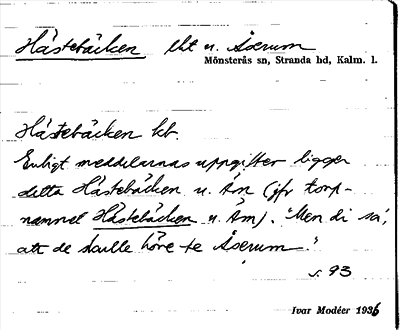 Hästebäcken lht u. Åserum
Mönsterås sn, Stranda hd, Kalm. l.
Hästebäcken kb.
Enligt meddelarnas uppgifter ligger
detta Hästebäcken u. Ám (jfr torp-
namnet Hästebäcken u. Ám). "Men di sa',
att de skulle höre te Åserum."
s. 93
Ivar Modéer 1936